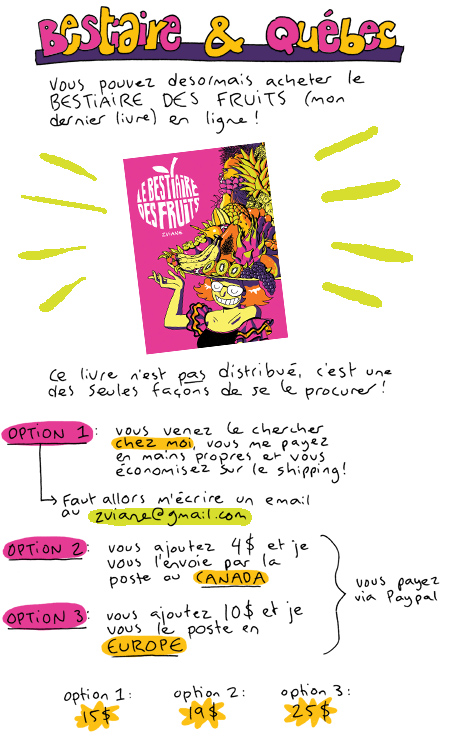 Bestiaire & Québec
Vous pouvez desormais acheter le
BESTIAIRE DES FRUITS (mon
dernier livre) en ligne!
LE BESTIAIRE
DES FRUITS
ZVIANE
Ce livre n'est pas distribué, c'est une
des seules façons de se le procurer!
OPTION 1: vous venez le chercher
chez moi, vous me payez
en mains propres et vous
économisez sur le shipping!
Faut allors m'écrire un email
au zviane@gmail.com
OPTION 2: vous ajoutez 4$ et je
vous l'envoie par la
poste au CANADA
OPTION 3: vous ajoutez 10$ et je
vous le poste en
EUROPE
vous payez
via Paypal
option 1: option 2: option 3:
15$ 19$ 25$